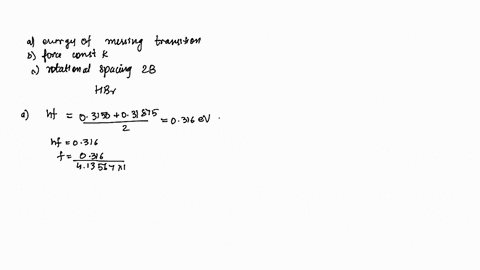 a) energy of missing transition
b) force const k
a) rotational spacing 2B
HBr
a) hf = 0.3150 + 0.31875 / 2 = 0.316 eV .
hf = 0.316
f = 0.316 / 4.13567 x1